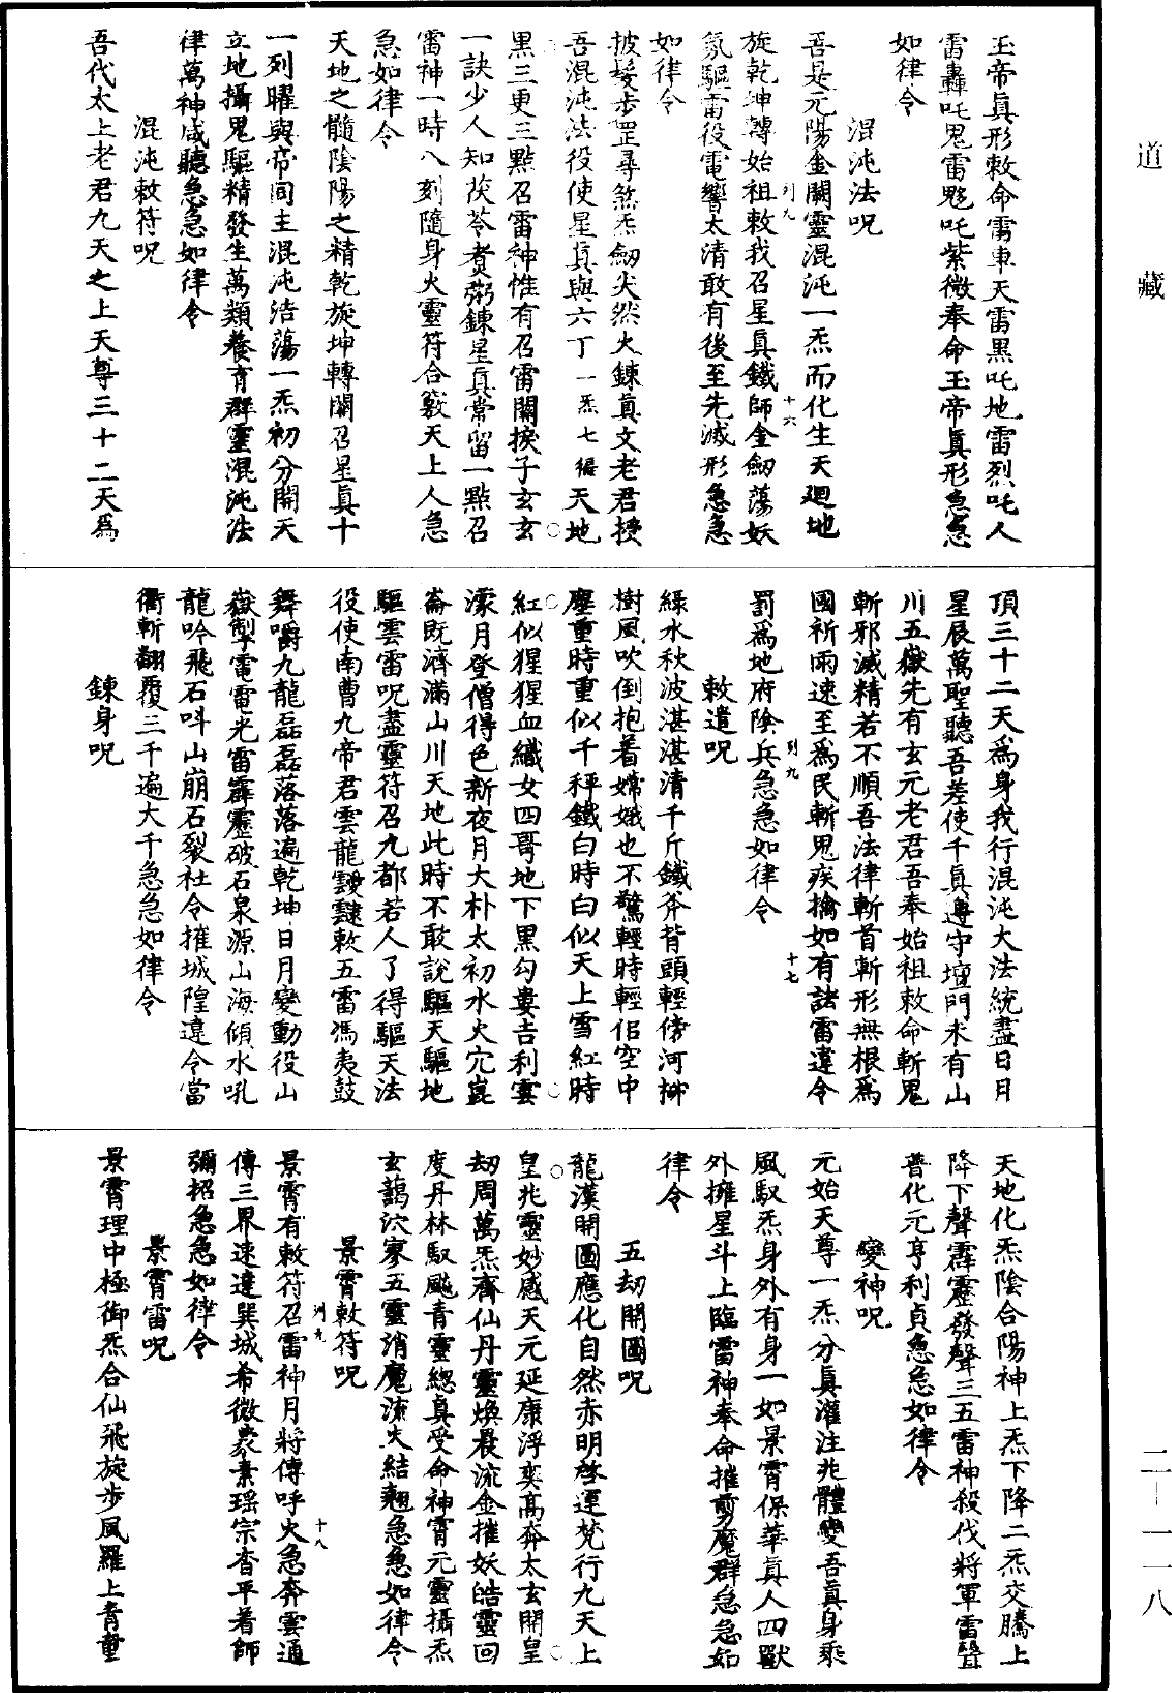 道藏
玉帝眞形敕命雷車天雷黑吒地雷烈吒人
雷轟吒鬼雷魁吒紫微奉命玉帝眞形急急
如律令
混沌法呪
吾是元陽金闕靈混沌一炁而化生天廻地
列九 十六
旋乾坤轉始祖敕我召星眞鐵師金劒蕩妖
氛驅雷役電響太清敢有後至先滅形急急
如律令
披髮步罡尋煞炁劒尖然火鍊眞文老君授
吾混沌法役使星眞與六丁一炁七徧天地
黑三更三點召雷神惟有召雷關捩子玄玄
一訣少人知茯苓煑粥鍊星眞常留一點召
雷神一時八刻隨身火靈符合籔天上人急
急如律令
天地之髓陰陽之精乾旋坤轉關召星眞十
一列曜與帝同主混沌浩蕩一炁初分開天
立地攝鬼驅精發生萬類養育群靈混沌法
律萬神咸聽急急如律令
混沌敕符呪
吾代太上老君九天之上天尊三十二天爲
頂三十二天爲身我行混沌大法統盡日月
星辰萬聖聽吾差使千眞遵守壇門未有山
川五嶽先有玄元老君吾奉始祖敕命斬鬼
斬邪滅精若不順吾法律斬首斬形無根爲
國祈雨速至爲民斬鬼疾擒如有諸雷違令
列九 十七
罰爲地府陰兵急急如律令
敕遣呪
綠水秋波湛湛清千斤鐵斧背頭輕傍河柳
樹風吹倒抱着嫦娥也不驚輕時輕侶空中
塵重時重似千秤鐵白時白似天上雪紅時
紅似猩猩血織女四哥地下黑勾婁吉利雲
濛月登僧得色新夜月大朴太初水火穴崑
崙既濟滿山川天地此時不敢說驅天驅地
驅雲雷呪盡靈符召九都若人了得驅天法
役使南曹九帝君雲龍靉靆敕五雷馮夷鼓
舞嚼九龍磊磊落落遍乾坤日月變動役山
嶽掣電雷光雷霹靂破石泉源山海傾水吼
龍吟飛石呌山崩石裂社令擁城隍違令當
衢斬翻覆三千遍大千急急如律令
鍊身呪
天地化炁陰合陽神上炁下降二炁交騰上
降下聲霹靂發聲三五雷神殺伐將軍雷聲
普化元亨利貞急急如律令
變神呪
元始天尊一炁分眞灌注兆體變吾眞身乘
風馭炁身外有身一如景霄保華眞人四獸
外擁星斗上臨雷神奉命摧剪魔群急急如
律令
五劫開圖呪
龍漢開圖應化自然赤明啓運梵行九天上
皇兆靈妙感天元延康浮奕高奔太玄開皇
劫周萬炁齊仙丹靈煥晨流金摧妖皓靈回
度丹林馭飈青靈總眞受命神霄元靈攝炁
玄藹次寥五靈消魔流火結翹急急如律令
景霄敕符呪
景霄有敕符召雷神月將傳呼火急奔雲通
列九 十八
傳三界速達巽城希微衆素瑶宗杳平着師
彌招急急如律令
景霄雷呪
景霄理中極御炁合仙飛旋步風羅上青童
二—一一八